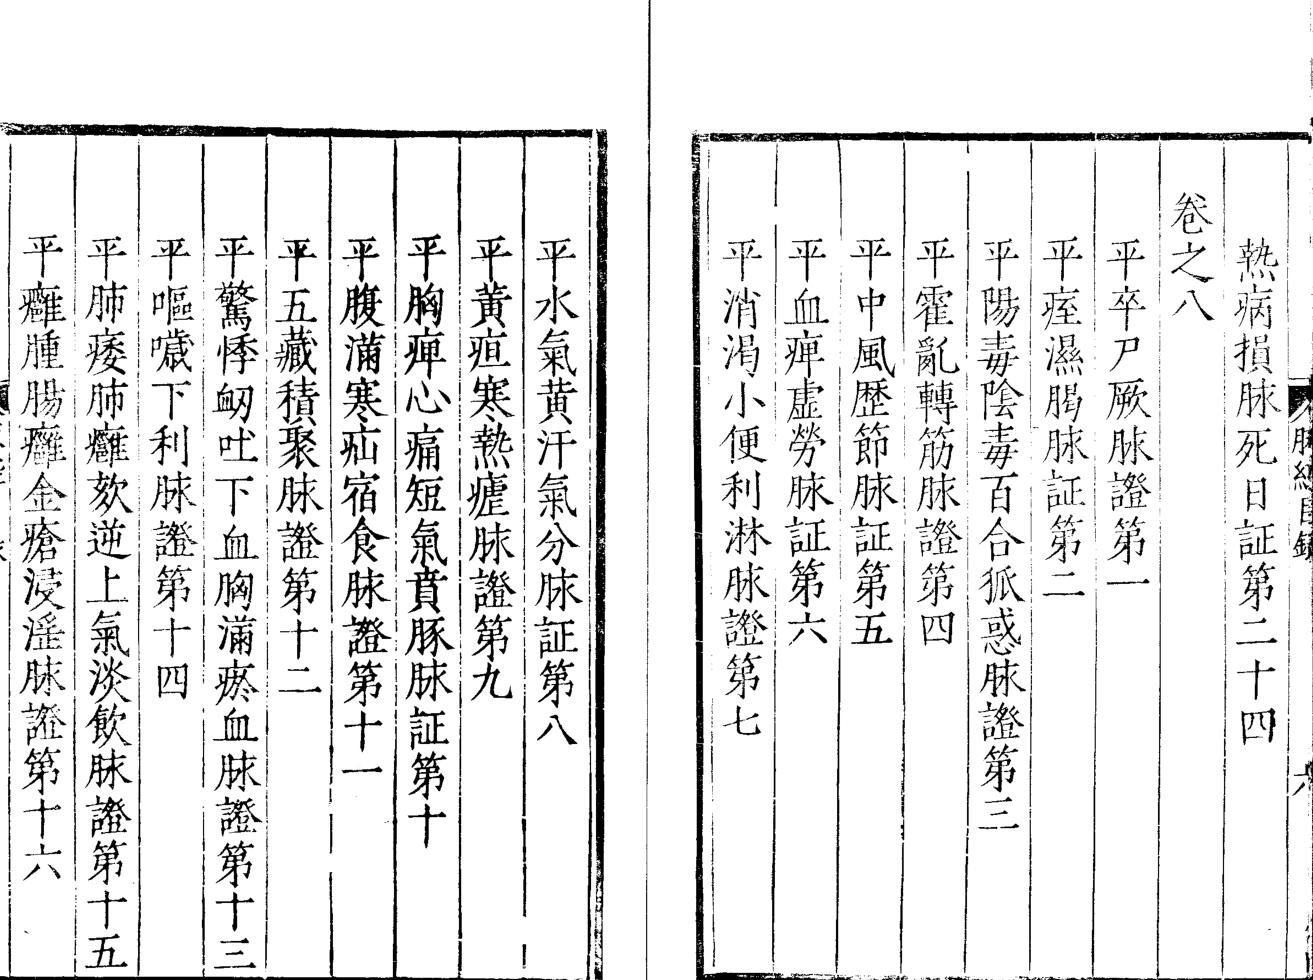 脉經目録
六
熱病損脉死日証第二十四
卷之八
平卒尸厥脉證第一
平痓濕暍脉証第二
平陽毒陰毒百合狐惑脉證第三
平霍亂轉筋脉證第四
平中風歷節脉証第五
平血痺虛勞脉証第六
平消渴小便利淋脉證第七
平水氣黄汗氣分脉証第八
平黄疸寒熱瘧脉證第九
平胸痺心痛短氣賁豚脉証第十
平腹滿寒疝宿食脉證第十一
平五藏積聚脉證第十二
平驚悸衂吐下血胸滿瘀血脉證第十三
平嘔噦下利脉證第十四
平肺痿肺癰欬逆上氣淡飲脉證第十五
平癰腫腸癰金瘡浸淫脉證第十六